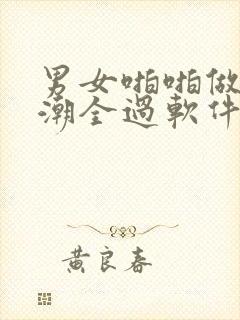 男女啪啪做
潮全過軟件
黃良春